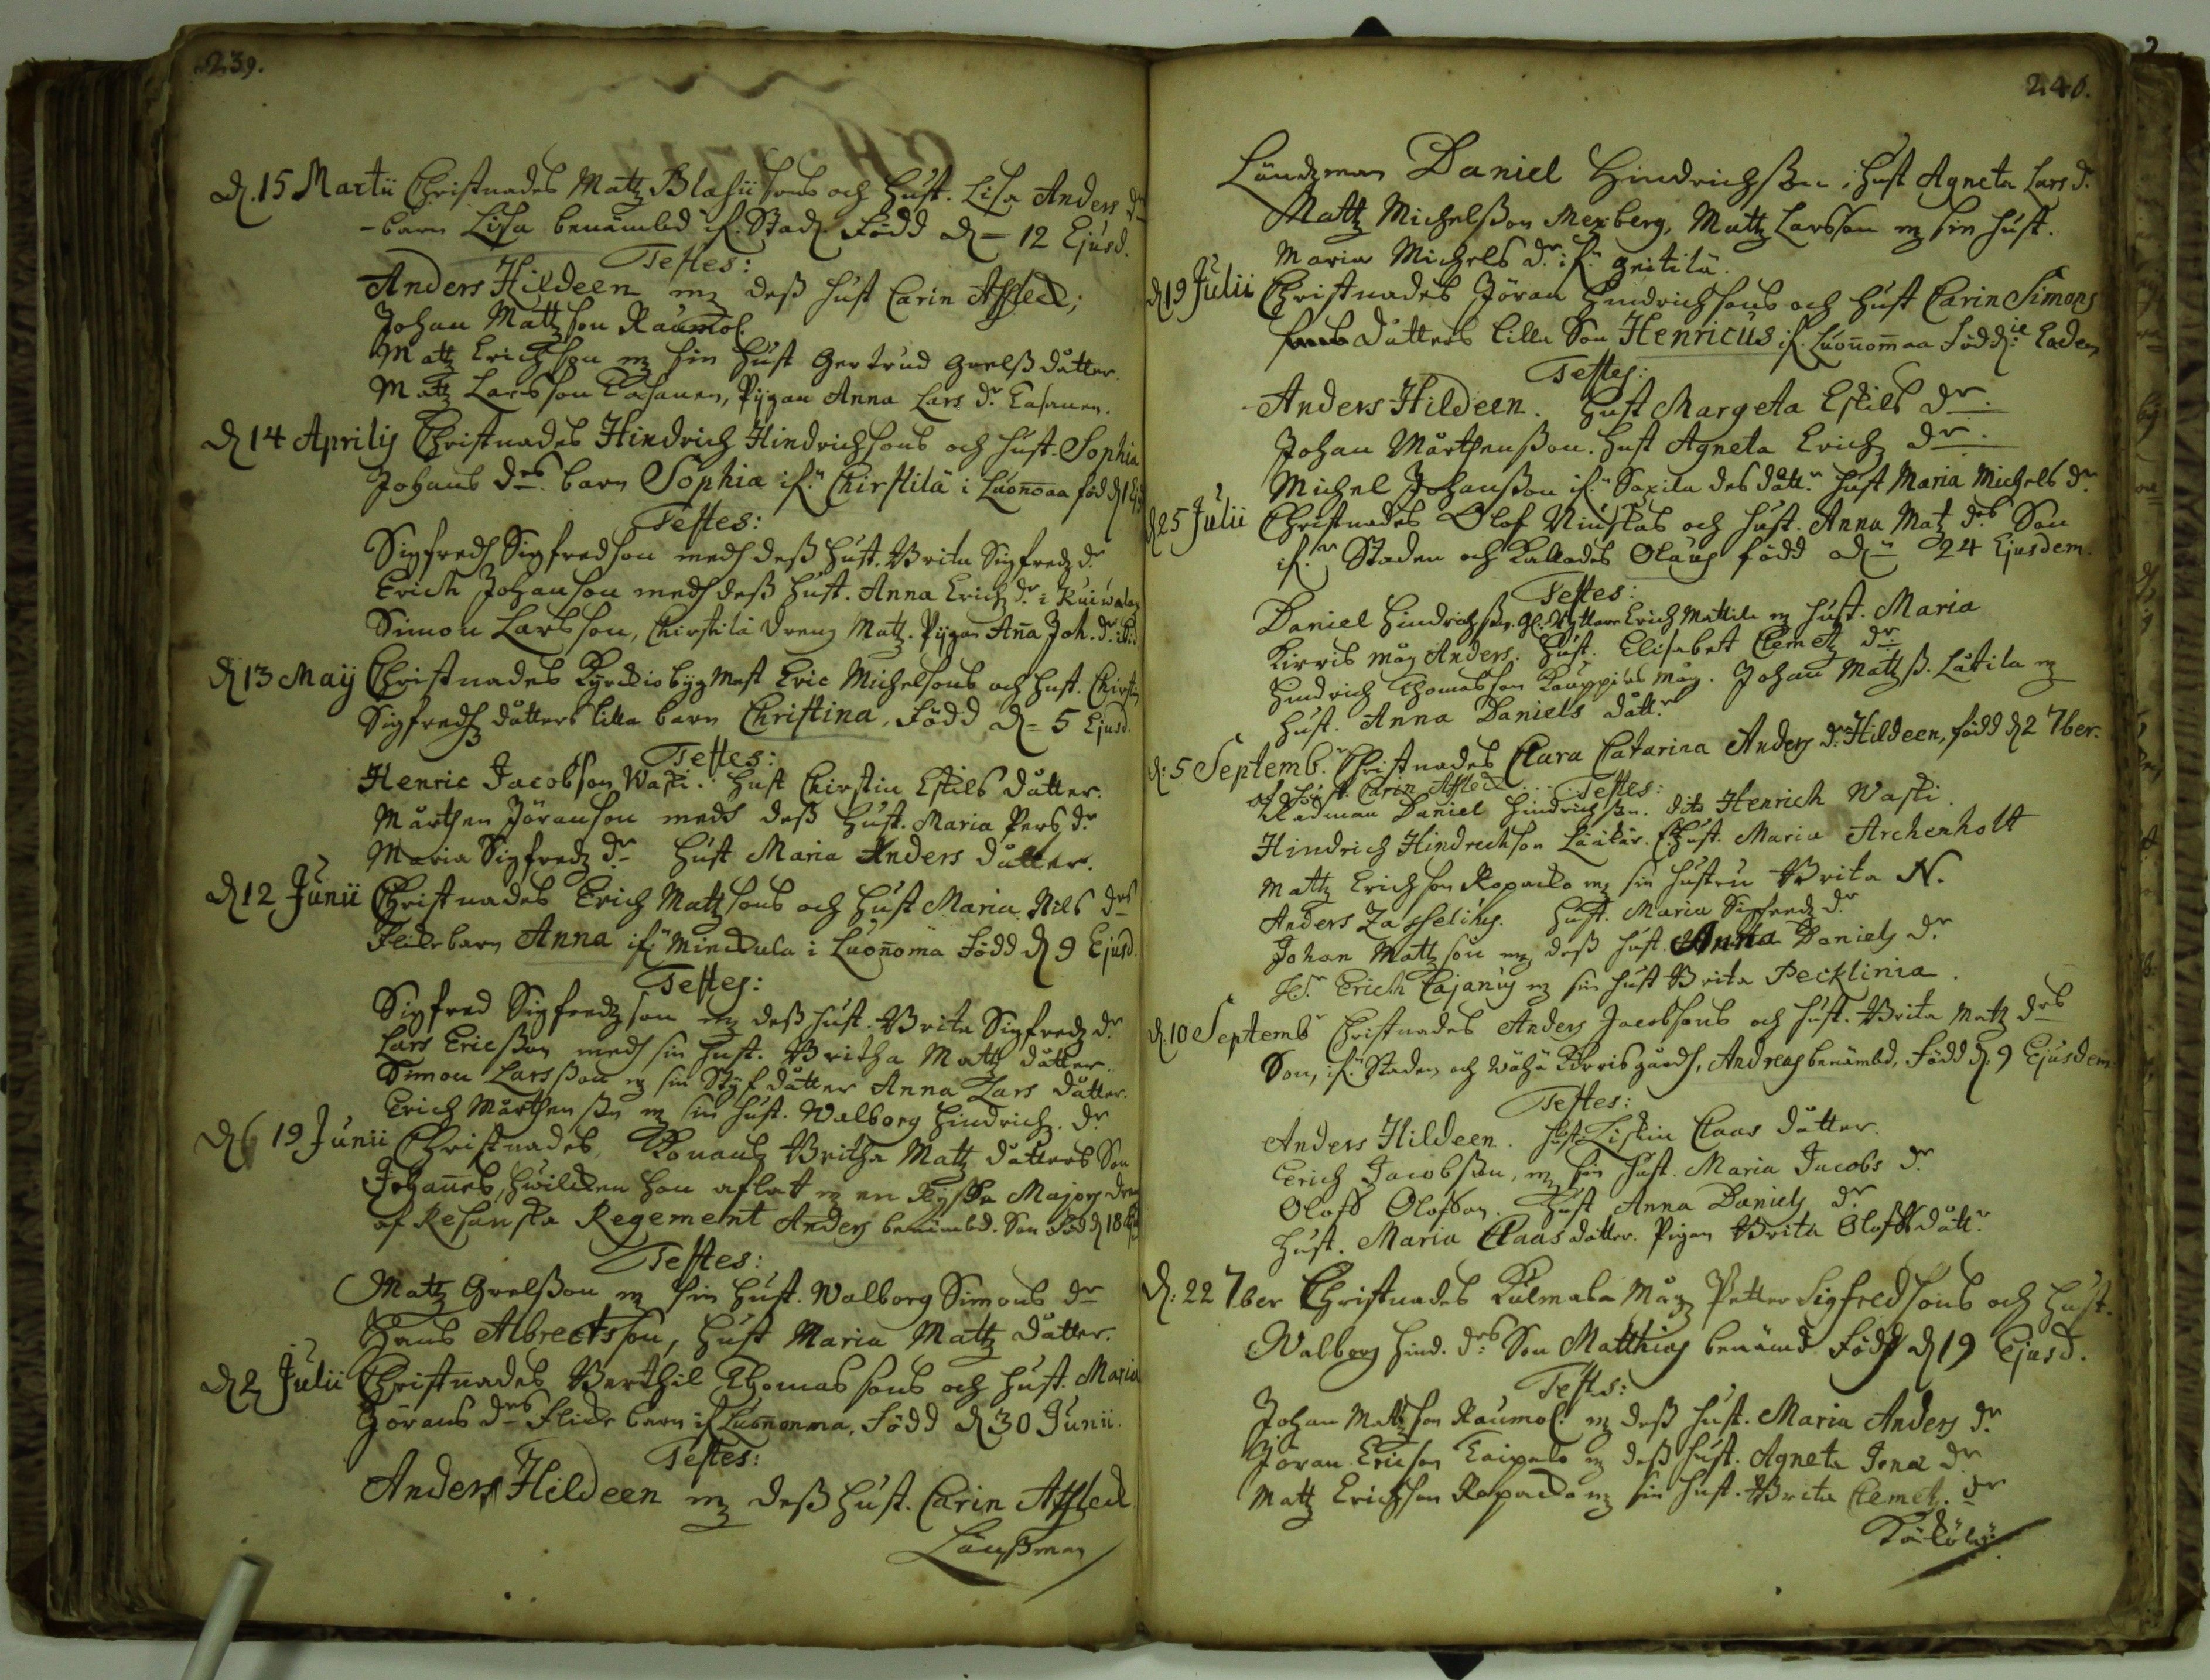 239.
d. 15 Martii Christnades Matz Blasiisons och Hust. Lisa Anders dr
-barn Lisa benämbd if. Stad. Född d - 12 Ejusd.
Testes:
Anders Hildeen mz dess hust Carin Affleck;
Johan Mattzson Raumol.
Matz Erichson mz sin Hust Gertrud Grelssdåtter.
Matz Larsson Casanen, Pijgan Anna Lars dr Casanen.
d 14 Aprilis Christnades Hindrich Hindrichsons och hust. Sophia
Johans drs barn Sophia if.n Chirstilä i Luonoaa föd d 1 Ejusd
Testes:
Sigfred Sigfredson medh dess Hust. Brita Sigfredz dr
Erich Johanson medh dess hust. Anna Erichz dr i
Simon Larsson, Chirstilä dreng Matz. Pijgan Anna Joh. dr. ibid.
d 13 Maij Christnades Kyrckiobyg Mest Eric Michelsons och hust. Chirstin
Sigfredz dåtters lilla barn Christina, Född d = 5 Ejusd.
Testes:
Henric Jacobson Waski. hust Chirstin Eskils dåtter.
Mårthen Jöranson medh dess Hust. Maria Pers dr
Maria Sigfredz dr Hust Maria Anders dåtter.
d 12 Junii Christnades Erich Mattzsons och Hust Maria Nils drs
Flickebarn Anna if.n Mieckula i Luonoma Född d 9 Ejusd.
Testes:
Sigfred Sigfredzson mz dess hust. Brita Sigfredz dr
Lars Ericsson medh sin hust. Britha Mattz dåtter.
Simon Larsson mz sin Styfdåtter Anna Lars dåtter.
Erich Mårthenssn mz sin hust. Walborg Hindrichz. dr
d 19 Junii Christnades, Konans Britha Mattz dåtters Son
Johannes, hwilcken hon aflat mz en Ryska Majors dreng
af Resanska Regement Anders benämbd. Son Föd d 18 Ejusd
Testes:
Matz Grelsson mz sin hust. Walborg Simons dr
Hans Albrectsson, hust Maria Mattz dåtter.
d 2 Julii Christnades Berthil Thomassons och hust. Maria
Görans drs Flicke barn if. Luononma, Född d 30 Junii.
Testes:
Anders Hildeen mz dess hust. Carin Affleck
Länssman
240.
Ländzman Daniel Hindrichssen, hust Agneta Lars dr.
Mattz Michelsson Mexberg, Mattz Larsson mz sin hust.
Maria Michels dr. if.n Heitilä.
d 19 Julii Christnades Jöran Hindrichsons och hust Carin Simons
dåtters lille Son Henricus if. Luonomaa Född die Eadem
Testes:
Anders Hildeen. hust Margeta Eskils dr.
Johan Mårthensson. hust Agneta Erichz dr.
Michel Johansson if.n Saxila des dått.r hust Maria Michels dr
d 25 Julii Christnades Olof Niuskas och hust. Anna Matz drs Son
if.n Staden och kallades Olaus född d = 24 Ejusdem.
Testes:
Daniel Hindrichssn. Gl. Ryttare Erich Mattila mz hust. Maria
Kirris måg Anders. Hust. Elisabet Clemetz dr
Hindrich Thomasson Kauppilas måg. Johan Mattzs. Låtila mz
hust. Anna Daniels dått.r
d: 5 Septemb. Christnades Clara Catarina Anders dr Hildeen, född d 2 7ber.
af hust. Carin Affleck. Testes:
Rådman Daniel Hindrichsn. dito Henrich Waski.
Hindrich Hindrechson Lankär. E. Hust. Maria Archenholt
Mattz Erichson Kopacka mz sin hustru Brita N.
Anders Zasseling. Hust. Maria Sigfredz dr
Johan Mattzson mz dess hust. Anna Daniels dr
Hr. Erich Cajanus mz sin hust Brita Pecklinia.
d. 10 Septembr Christnades Anders Jacobsons och hust. Brita Matz drs
Son, if.n Staden och Wähä Kirris gårdh, Andreas benämbd, Född d. 9 Ejusdem
Testes:
Anders Hildeen. hust Liskin Claas dåtter.
Erich Jacobsson, mz sin hust. Maria Jacobs dr
Oloff Olofson. Hust Anna Daniels dr
Hust. Maria Claas dåtter. Pigan Brita Oloffsdått.r
d: 22 7ber Christnades Kulmala Måg Petter Sigfredsons och hust.
Walborg Hind. drs Son Matthias benämd Född d 19 Ejusd.
Testes:
Johan Mattzson Raumol. mz dess hust. Maria Anders dr
Jöran Ericson Taipale mz dess hust. Agneta Jona dr
Mattz Erichson Kopacka mz sin hust. Brita Clemetz. dr